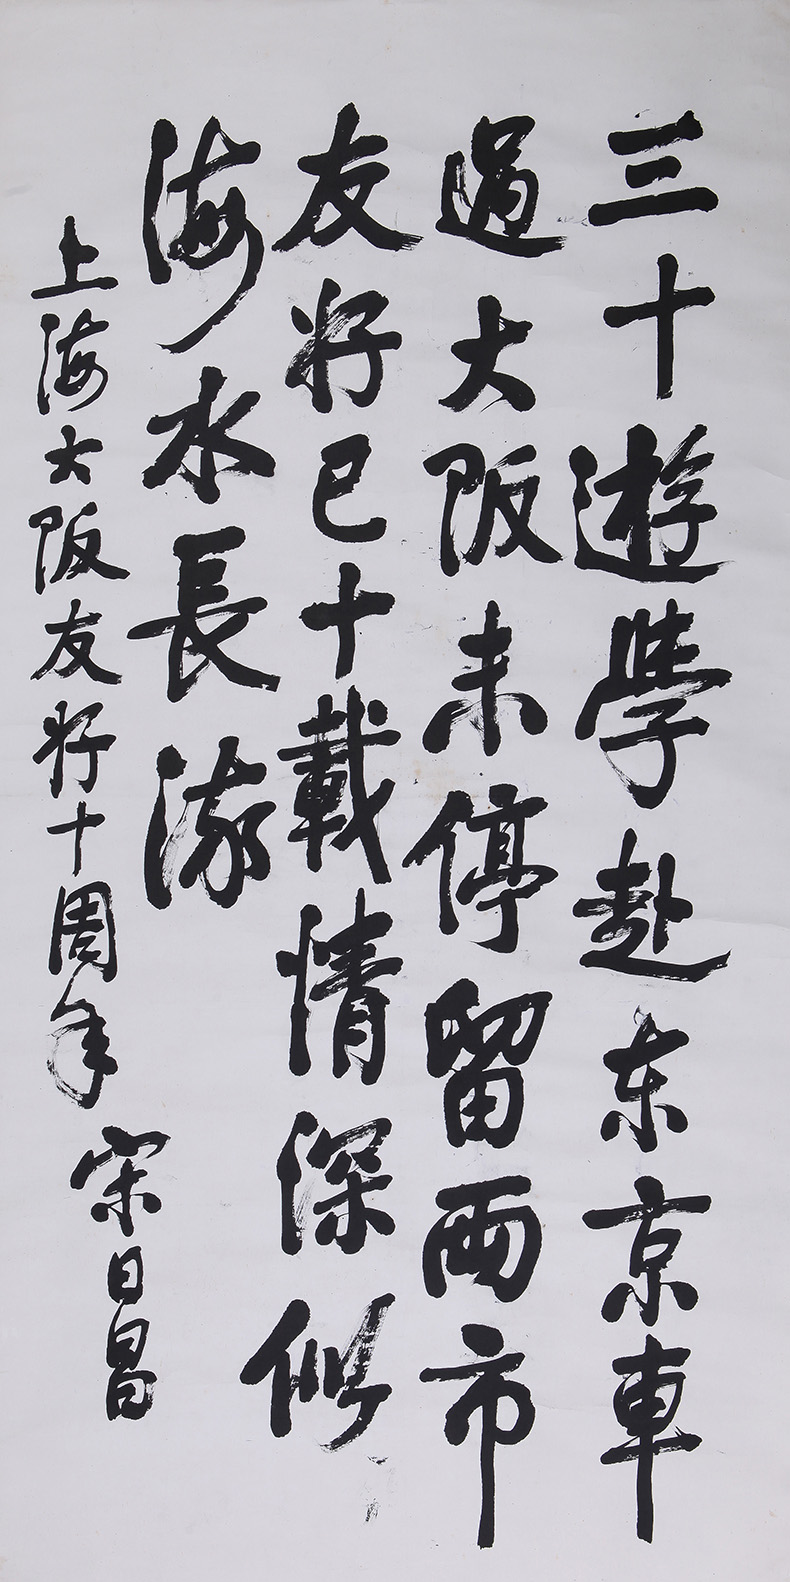 三十遊學赴东京車
過大阪未停留兩市
友好已十載情深似
海水長流
上海大阪友好十周年
宋日昌